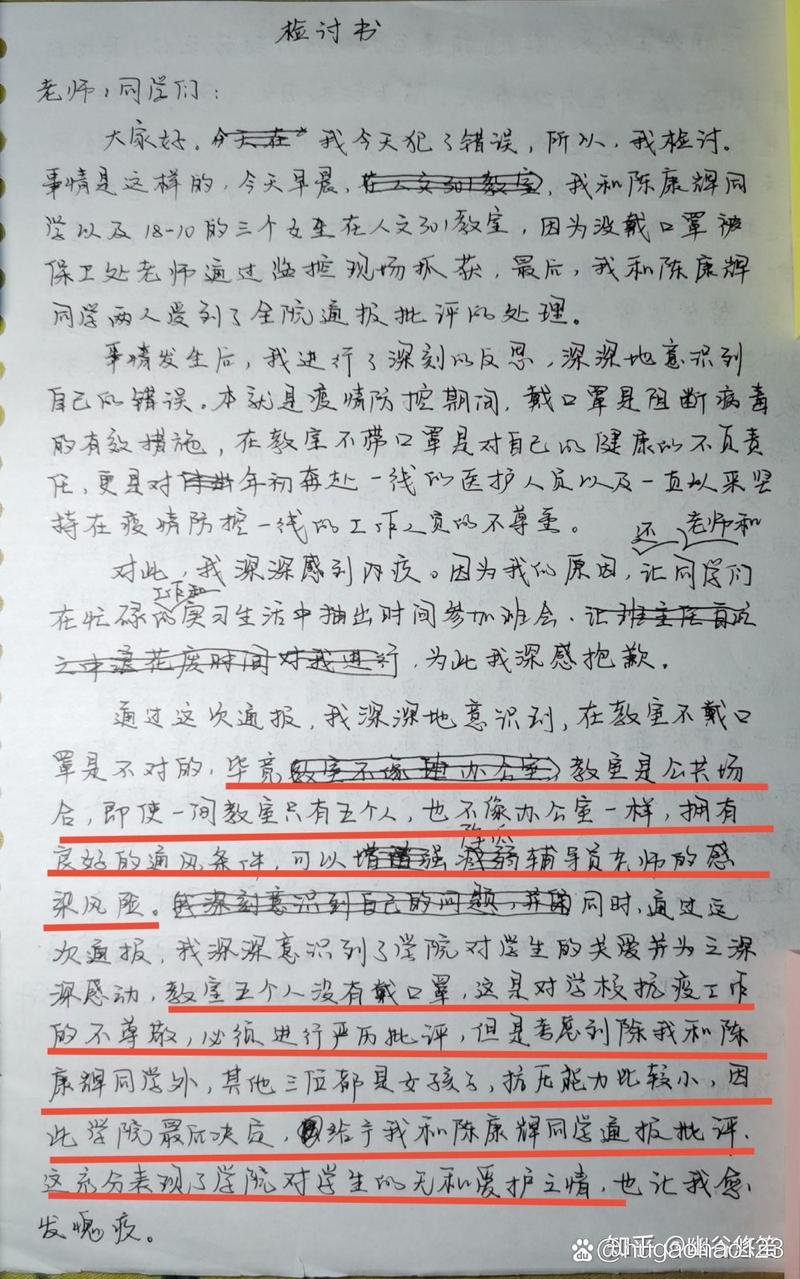 检讨书
老师,同学们:
大家好。今天在 我今天犯了错误,所以,我检讨。
事情是这样的,今天早晨,在人文301教室,我和陈康辉同
学以及18-10的三个女生在人文301教室,因为没戴口罩被
保卫处老师通过监控现场抓获,最后,我和陈康辉
同学两人受到了全院通报批评的处理。
事情发生后,我进行了深刻的反思,深深地意识到
自己的错误。本就是疫情防控期间,戴口罩是阻断病毒
的有效措施,在教室不带口罩是对自己的健康的不负责
任,更是对年初奔赴一线的医护人员以及一直以来坚
持在疫情防控一线的工作人员的不尊重。
还 老师和
对此,我深深感到内疚。因为我的原因,让同学们
工作和
在忙碌的实习生活中抽出时间参加班会、让班主任百忙
之中浪花废时间对我进行,为此我深感抱歉。
通过这次通报,我深深地意识到,在教室不戴口
罩是不对的,毕竟教室不像办公室,教室是公共场
合,即使一间教室只有五个人,也不像办公室一样,拥有
降低
良好的通风条件,可以增强辅导员老师的感
染风险。我深刻意识到自己的问题,并同时,通过这
次通报,我深深意识到了学院对学生的关爱并为之深
深感动,教室五个人没有戴口罩,这是对学校抗疫工作
的不尊敬,必须进行严厉批评,但是考虑到除我和陈
康辉同学外,其他三位都是女孩子,抗压能力比较小,因
此学院最后决定,给予我和陈康辉同学通报批评、
这充分表现了学院对学生的无私爱护之情,也让我愈
发愧疚。
知乎 @幽谷悠笛
@hugaohao123